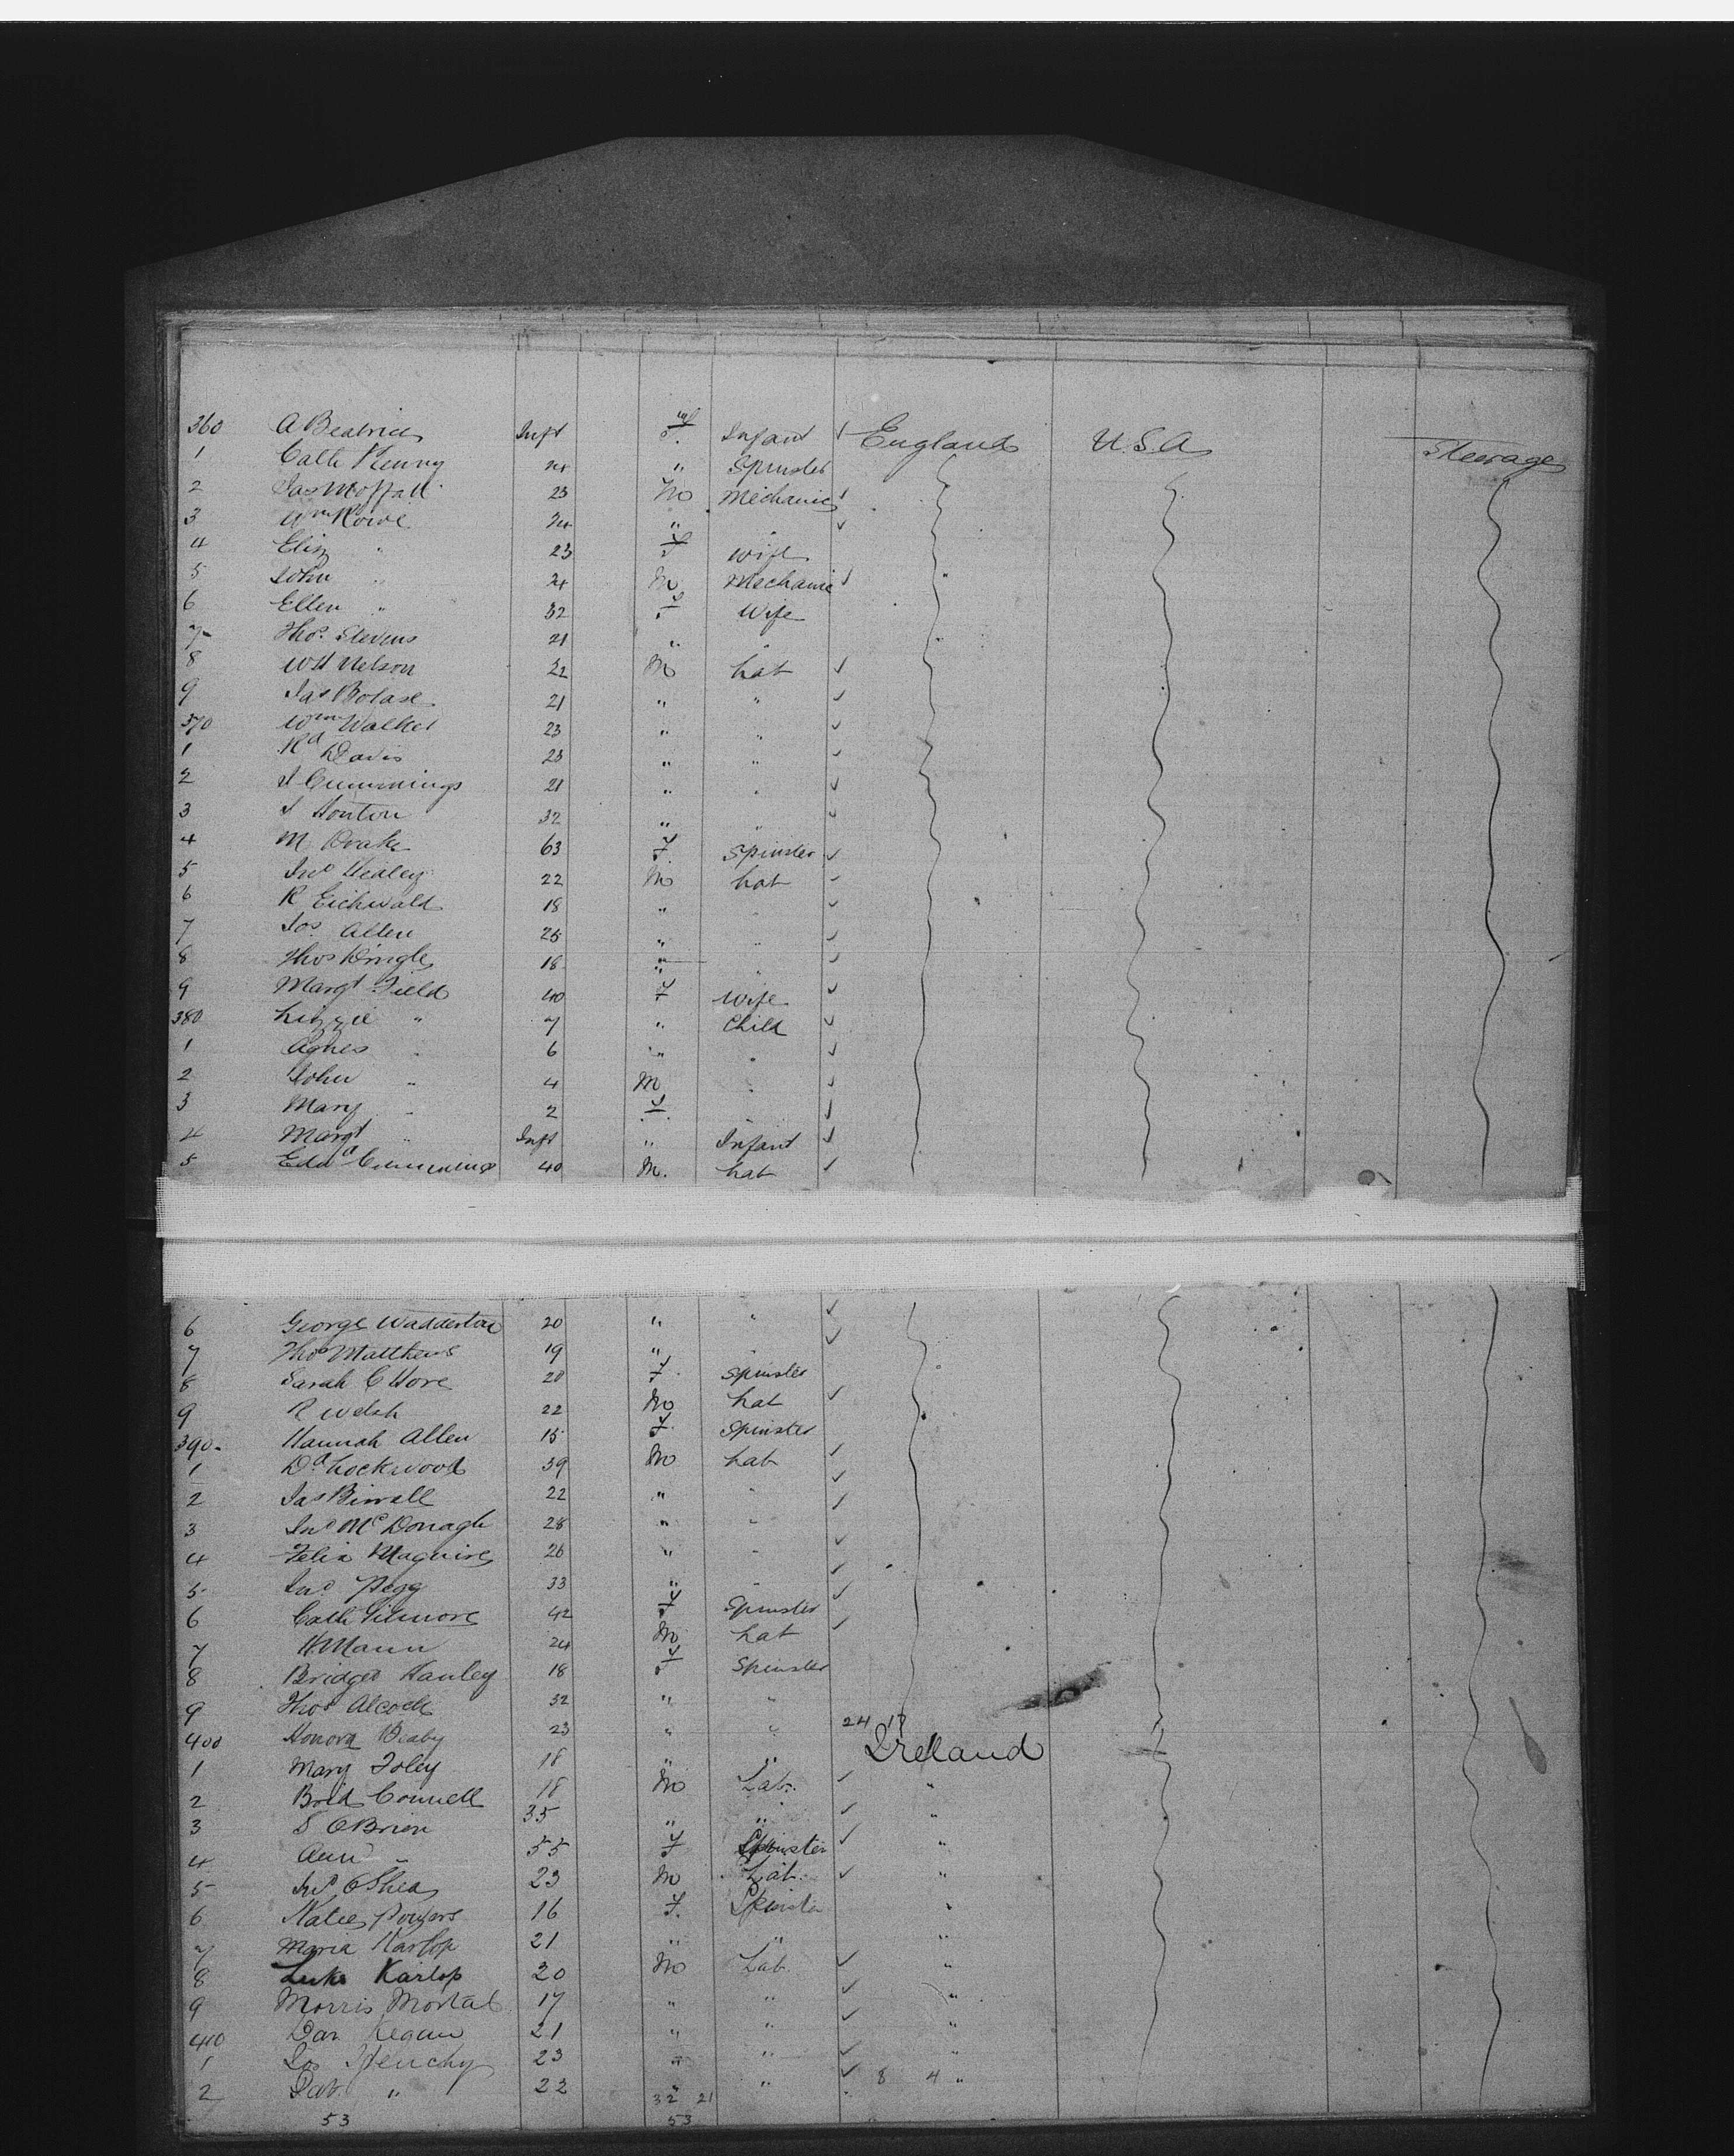 360 A Beatrice Inft F. Infant ✓ England U.S.A. Steerage
1 Cath Kenny 24 " Spinster
2 Jas Moffatt 23 M Mechanic ✓
3 Wm Rowe 24 " ✓
4 Eliz " 23 F wife
5 John " 24 M Mechanic ✓
6 Ellen " 32 F Wife
7 Thos. Stevens 21 " "
8 W H Nelson 22 M Lab ✓
9 Jas Bolase 21 " " ✓
370 Wm Walker 23 " " ✓
1 Rd Davis 23 " " ✓
2 J Cummings 21 " " ✓
3 J Honton 32 " " ✓
4 M. Drake 63 F. Spinster ✓
5 Jno Healey 22 M Lab ✓
6 R Eichwald 18 " " ✓
7 Jos. Allen 25 " " ✓
8 Thos Dingle 18 " " ✓
9 Margt Field 40 F Wife ✓
380 Lizzie " 7 " Child ✓
1 Agnes " 6 " " ✓
2 John " 4 M " ✓
3 Mary " 2 F. " ✓
4 Margt " Inft " Infant ✓
5 Edwd Cummings 40 M. Lab ✓
6 George Wadderton 20 " " ✓
7 Thos Matthews 19 " " ✓
8 Sarah C Hore 20 F. Spinster
9 R Welsh 22 M Lab ✓
390 Hannah Allen 15 F. Spinster
1 Dd Lockwood 39 M Lab ✓
2 Jas Birrall 22 " " ✓
3 Jno McDonagh 28 " " ✓
4 Felix Maguire 26 " " ✓
5 Jno Pegg 33 " " ✓
6 Cath Gilmore 42 F Spinster ✓
7 H Mann 24 M Lab ✓
8 Bridget Hanley 18 F Spinster
9 Thos Alcock 32 " "
400 Honora 23 " " 24 17
1 Mary Foley 18 " " Ireland
2 Connell 18 M Lab. ✓ "
3 S O'Brien 35 " " ✓ "
4 Ann " 55 F Spinster ✓ "
5 Jno O'Shea 23 M Lab. ✓ "
6 Katie Powers 16 F. Spinster "
7 Maria Karlop 21 " " "
8 Luke Karlop 20 M Lab. ✓ "
9 Morris 17 " " ✓ "
410 Dan Regan 21 " " ✓ "
1 Jos 23 " " ✓ "
2 Pat. " 22 " " ✓ 8 4 "
32 21
53 53